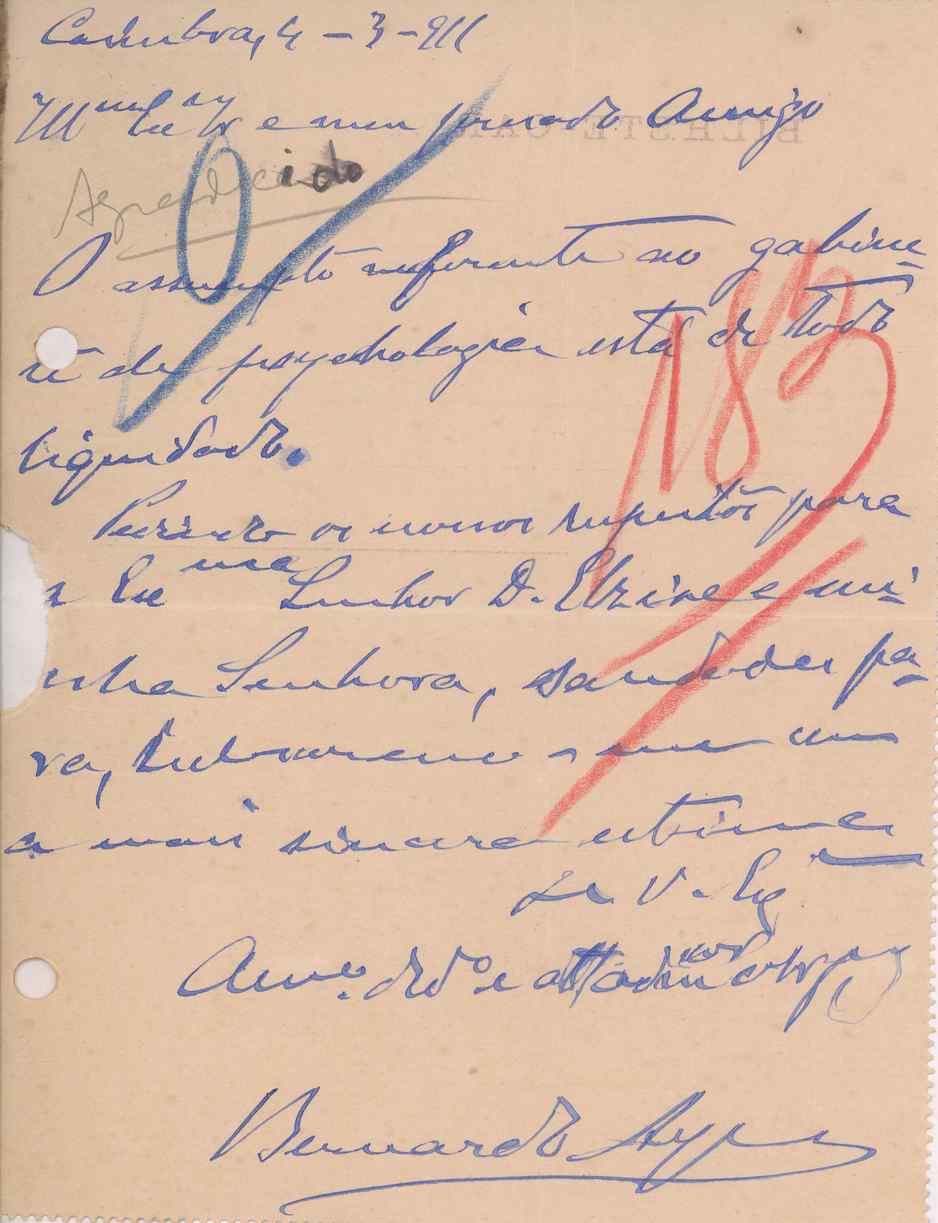 Coimbra, 4-3-911
Ill.mo Ex.mo Sr e meu prezado Amigo
Agradecido
O assumpto referente ao gabine-
te de psychologia está de todo
liquidado.
183
os nossos respeitos para
a Exma Senhora D. Elzira e mi-
nha Senhora, saudades pa-
ra,
a mais sincera estima
De V. Ex
Amo. e
Bernardo Ayres